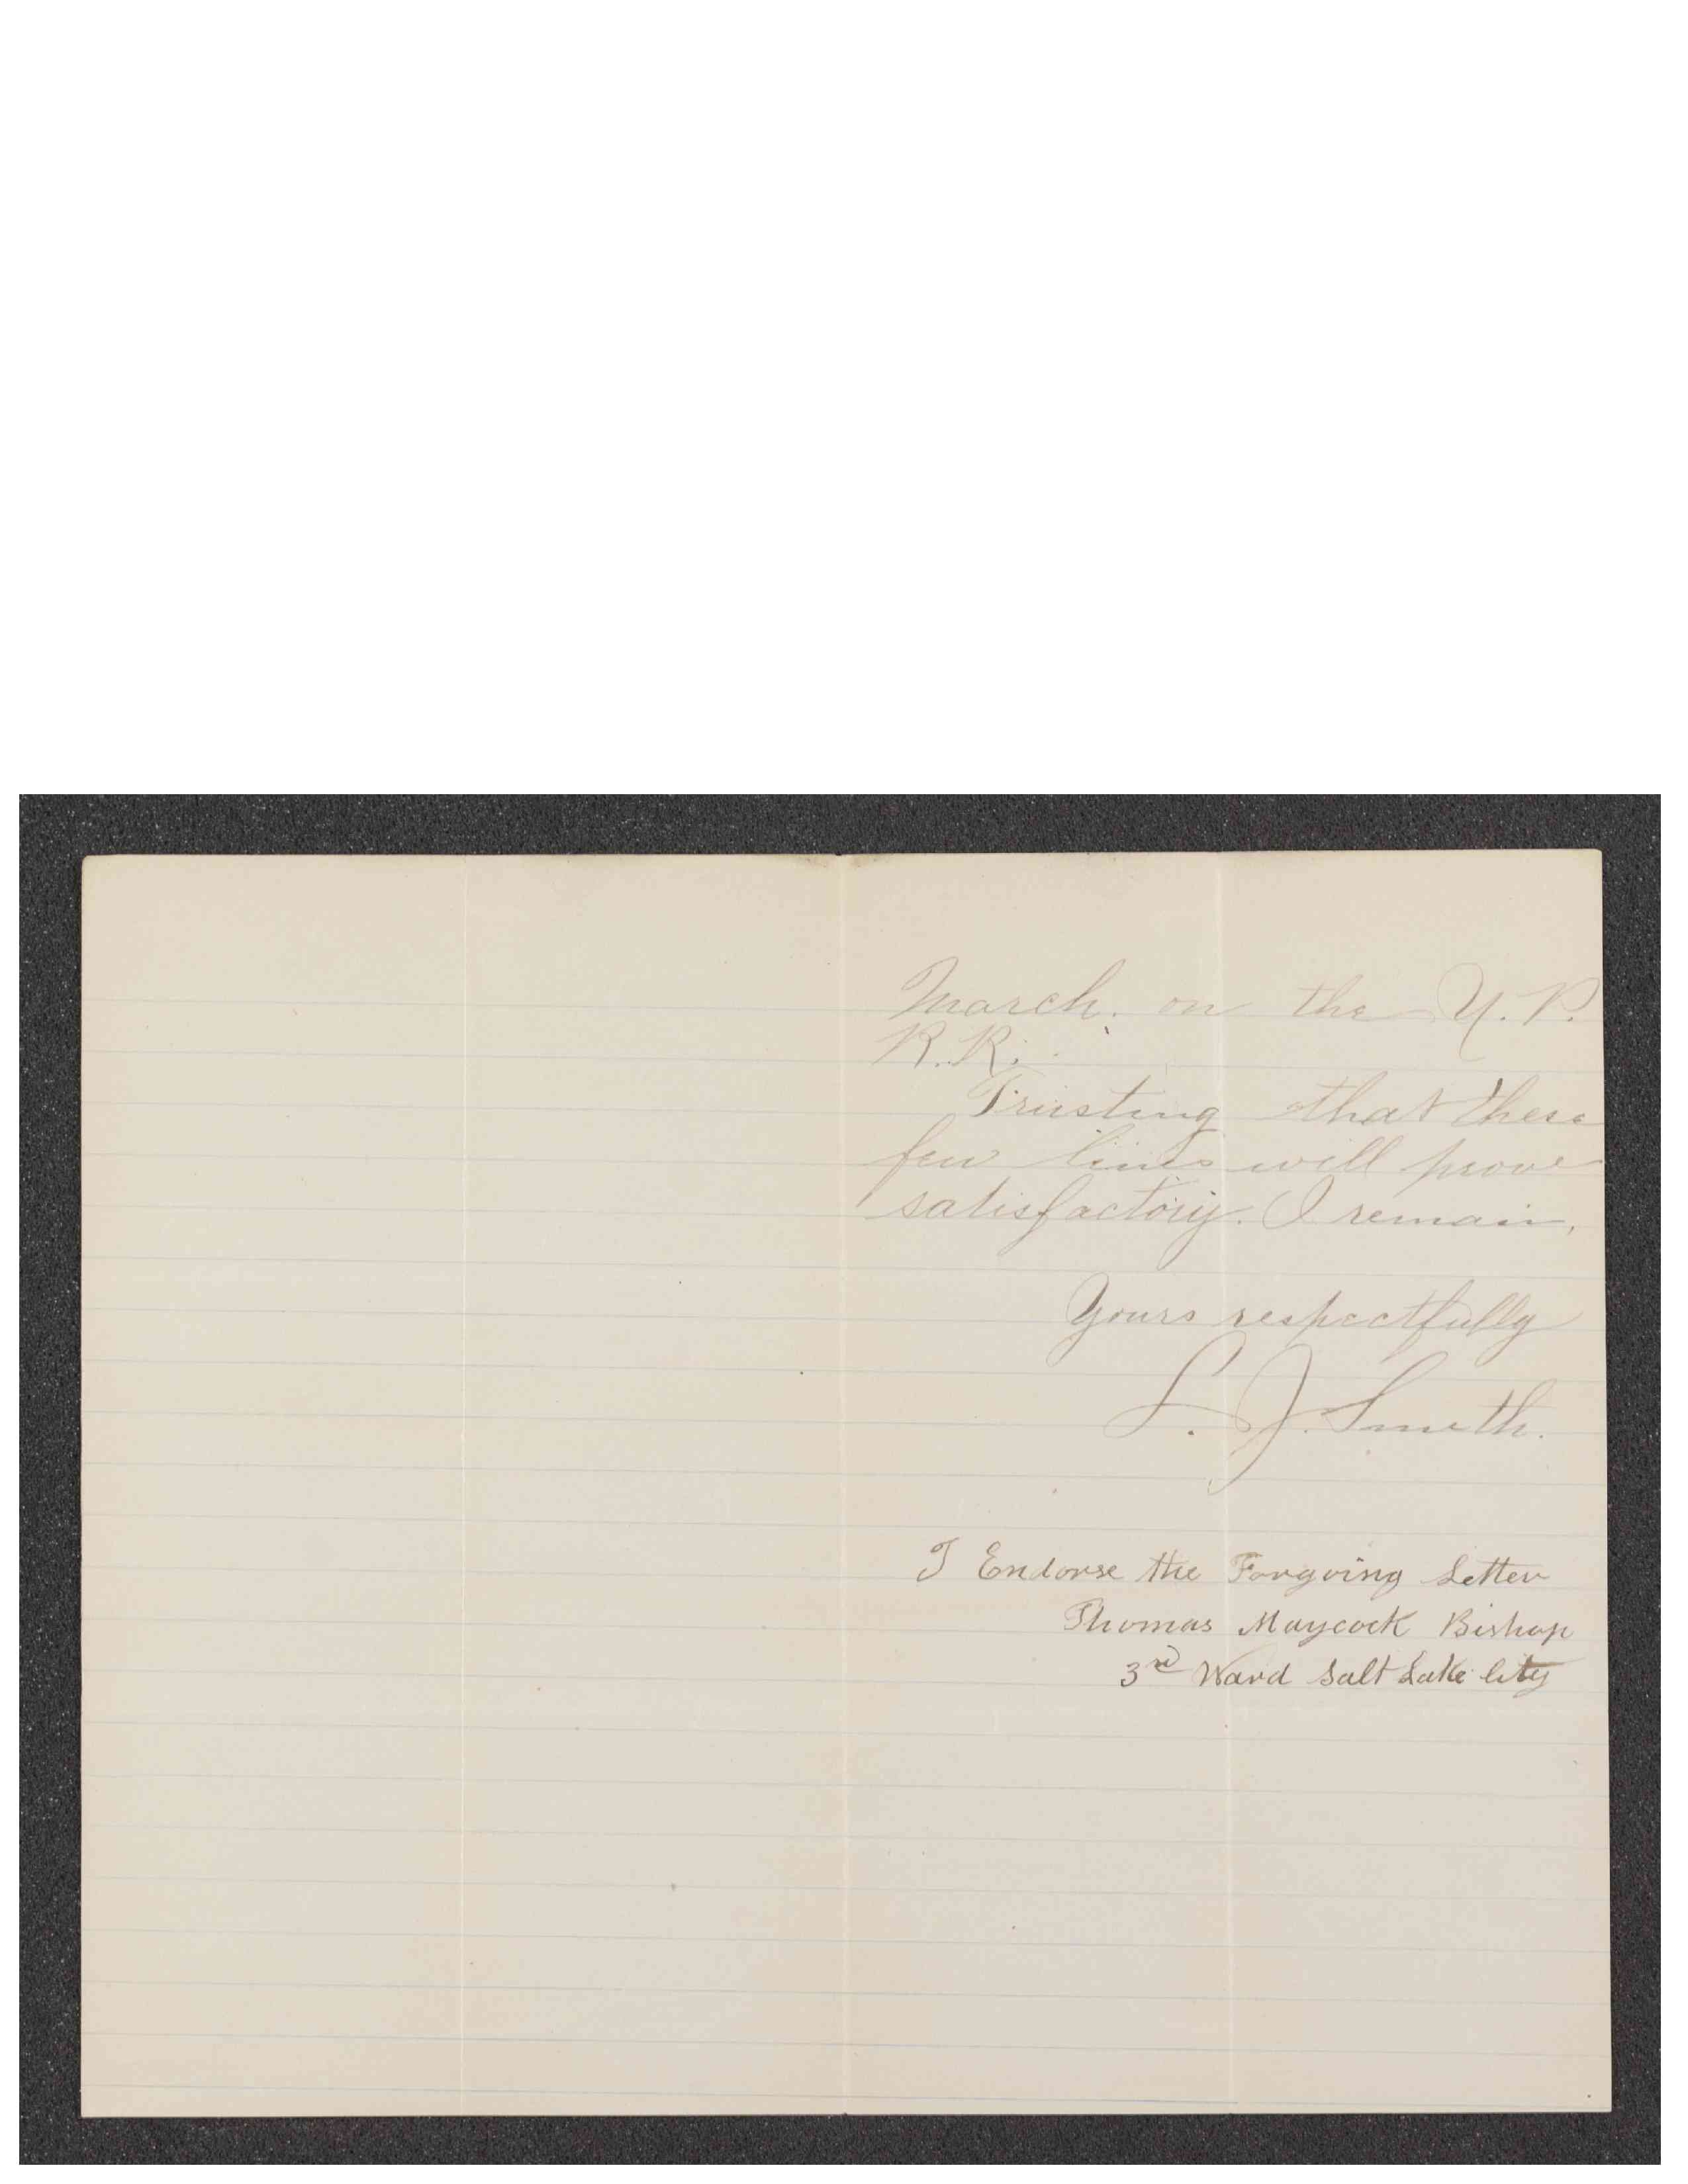 March. on the U.P.
R.R.
Trusting that these
few lines will prove
satisfactory. I remain,
Yours respectfully
S. J. Smith.
I Endorse the Forgoing Letter
Thomas Maycock Bishop
3rd Ward Salt Lake City